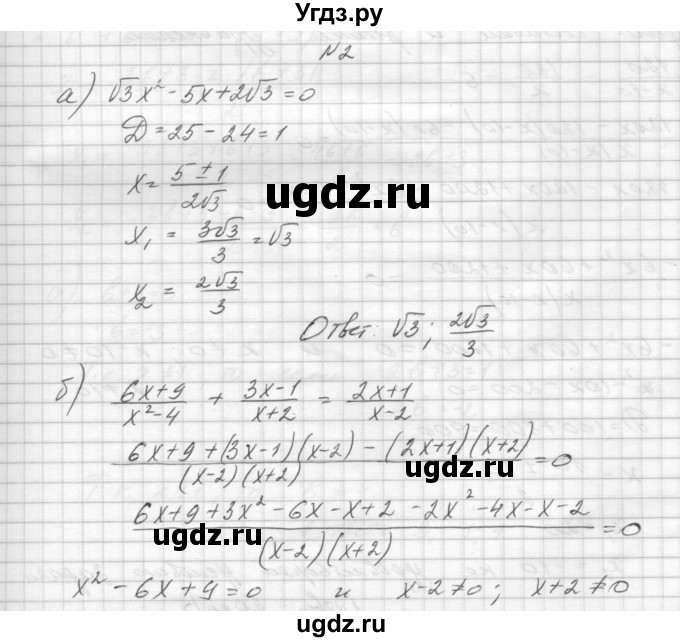 Угдз.ру
№2
а) √3x² - 5x + 2√3 = 0
D = 25 - 24 = 1
x = (5 ± 1)/(2√3)
ugdz.ru
x₁ = 3√3/3 = √3
x₂ = 2√3/3
Ответ: √3; 2√3/3
ugdz.ru
б) (6x+9)/(x²-4) + (3x-1)/(x+2) = (2x+1)/(x-2)
(6x+9+(3x-1)(x-2) - (2x+1)(x+2))/((x-2)(x+2)) = 0
ugdz.ru
(6x+9+3x²-6x-x+2-2x²-4x-x-2)/((x-2)(x+2)) = 0
ugdz.ru
x² - 6x + 9 = 0 и x-2≠0; x+2≠0
ugdz.ru